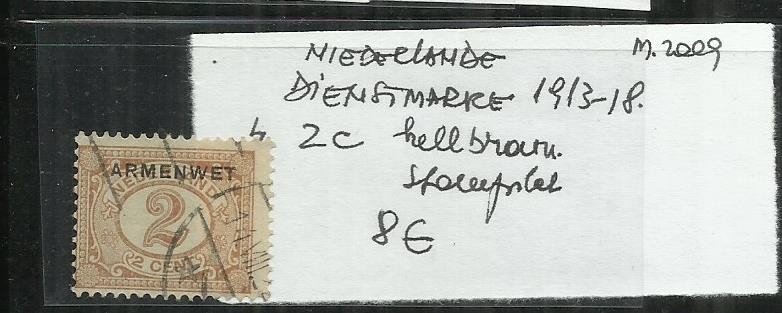 NIEDERLANDE M.2009
DIENSTMARKE 1913-18.
4 2C hellbraun.
gestempelt
8€
ARMENWET
NEDERLAND
2
2 CENT